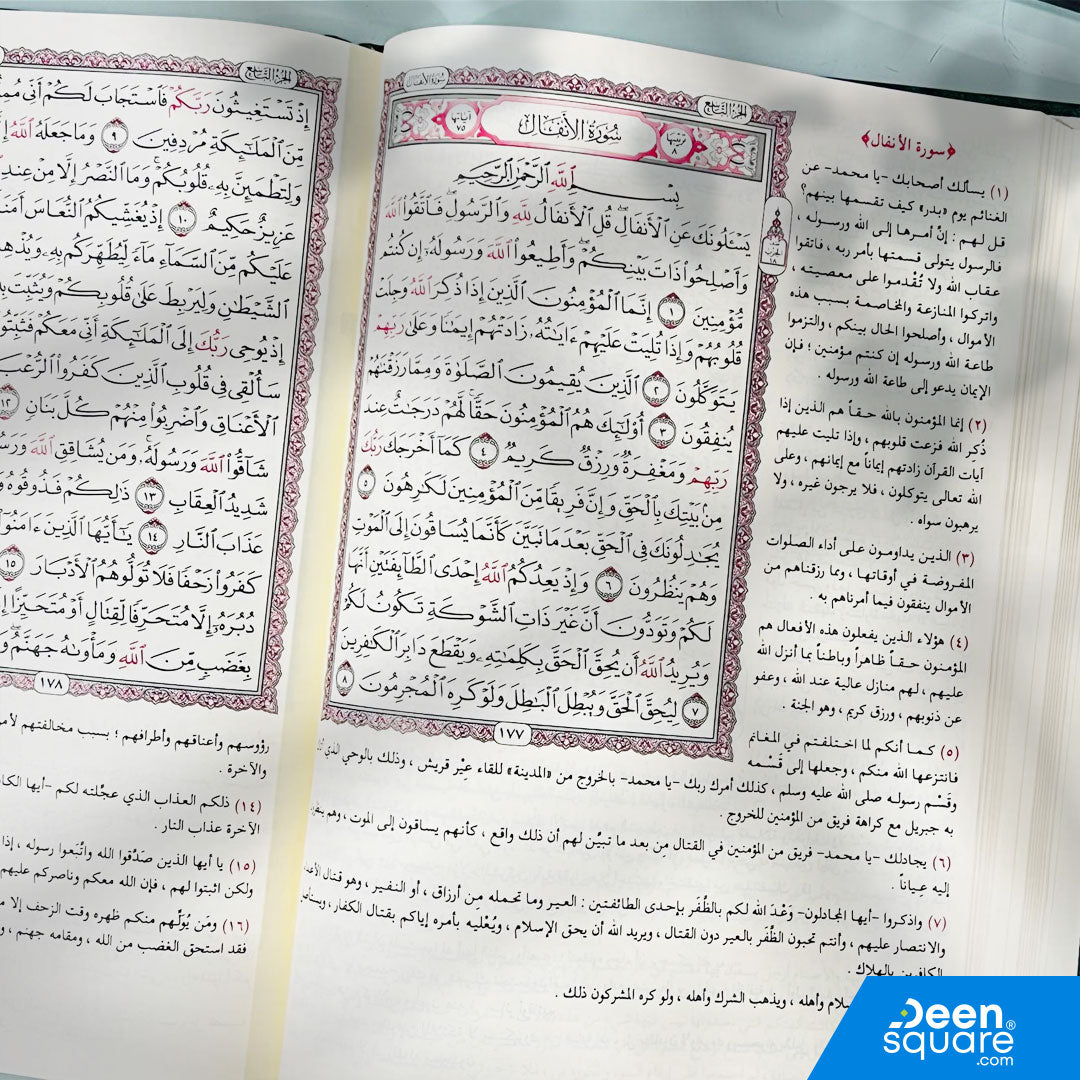 سورة الأنفال
الجزء التاسع
ترتيبها ٨
سُورَةُ الأَنفَالِ
آياتها ٧٥
بِسْمِ اللَّهِ الرَّحْمَٰنِ الرَّحِيمِ
يَسْـَٔلُونَكَ عَنِ ٱلْأَنفَالِ قُلِ ٱلْأَنفَالُ لِلَّهِ وَٱلرَّسُولِ فَٱتَّقُوا۟ ٱللَّهَ
وَأَصْلِحُوا۟ ذَاتَ بَيْنِكُمْ وَأَطِيعُوا۟ ٱللَّهَ وَرَسُولَهُۥٓ إِن كُنتُم
مُّؤْمِنِينَ ١ إِنَّمَا ٱلْمُؤْمِنُونَ ٱلَّذِينَ إِذَا ذُكِرَ ٱللَّهُ وَجِلَتْ
قُلُوبُهُمْ وَإِذَا تُلِيَتْ عَلَيْهِمْ ءَايَٰتُهُۥ زَادَتْهُمْ إِيمَٰنًا وَعَلَىٰ رَبِّهِمْ
يَتَوَكَّلُونَ ٢ ٱلَّذِينَ يُقِيمُونَ ٱلصَّلَوٰةَ وَمِمَّا رَزَقْنَٰهُمْ
يُنفِقُونَ ٣ أُو۟لَٰٓئِكَ هُمُ ٱلْمُؤْمِنُونَ حَقًّا لَّهُمْ دَرَجَٰتٌ عِندَ
رَبِّهِمْ وَمَغْفِرَةٌ وَرِزْقٌ كَرِيمٌ ٤ كَمَآ أَخْرَجَكَ رَبُّكَ
مِنۢ بَيْتِكَ بِٱلْحَقِّ وَإِنَّ فَرِيقًا مِّنَ ٱلْمُؤْمِنِينَ لَكَٰرِهُونَ ٥
يُجَٰدِلُونَكَ فِى ٱلْحَقِّ بَعْدَ مَا تَبَيَّنَ كَأَنَّمَا يُسَاقُونَ إِلَى ٱلْمَوْتِ
وَهُمْ يَنظُرُونَ ٦ وَإِذْ يَعِدُكُمُ ٱللَّهُ إِحْدَى ٱلطَّآئِفَتَيْنِ أَنَّهَا
لَكُمْ وَتَوَدُّونَ أَنَّ غَيْرَ ذَاتِ ٱلشَّوْكَةِ تَكُونُ لَكُمْ
وَيُرِيدُ ٱللَّهُ أَن يُحِقَّ ٱلْحَقَّ بِكَلِمَٰتِهِۦ وَيَقْطَعَ دَابِرَ ٱلْكَٰفِرِينَ
٧ لِيُحِقَّ ٱلْحَقَّ وَيُبْطِلَ ٱلْبَٰطِلَ وَلَوْ كَرِهَ ٱلْمُجْرِمُونَ ٨
١٧٧
الحزب ١٨
﴿سورة الأنفال﴾
(١) يسألك أصحابك -يا محمد- عن
الغنائم يوم «بدر» كيف تقسمها بينهم؟
قل لهم : إنَّ أمرها إلى الله ورسوله ،
فالرسول يتولى قسمتها بأمر ربه ، فاتقوا
عقاب الله ولا تُقْدموا على معصيته ،
واتركوا المنازعة والمخاصمة بسبب هذه
الأموال ، وأصلحوا الحال بينكم ، والتزموا
طاعة الله ورسوله إن كنتم مؤمنين ؛ فإن
الإيمان يدعو إلى طاعة الله ورسوله .
(٢) إنما المؤمنون بالله حقاً هم الذين إذا
ذُكر الله فزعت قلوبهم ، وإذا تليت عليهم
آيات القرآن زادتهم إيماناً مع إيمانهم ، وعلى
الله تعالى يتوكلون ، فلا يرجون غيره ، ولا
يرهبون سواه .
(٣) الذين يداومون على أداء الصلوات
المفروضة في أوقاتها ، ومما رزقناهم من
الأموال ينفقون فيما أمرناهم به .
(٤) هؤلاء الذين يفعلون هذه الأفعال هم
المؤمنون حقاً ظاهراً وباطناً بما أنزل الله
عليهم ، لهم منازل عالية عند الله ، وعفو
عن ذنوبهم ، ورزق كريم ، وهو الجنة .
(٥) كما أنكم لما اختلفتم في المغانم
فانتزعها الله منكم ، وجعلها إلى قَسْمه
وقَسْم رسوله صلى الله عليه وسلم ، كذلك أمرك ربك -يا محمد- بالخروج من «المدينة» للقاء عِيْر قريش ، وذلك بالوحي الذي
به جبريل مع كراهة فريق من المؤمنين للخروج .
(٦) يجادلك -يا محمد- فريق من المؤمنين في القتال مِن بعد ما تبيَّن لهم أن ذلك واقع ، كأنهم يساقون إلى الموت ، وهم
إليه عِياناً .
(٧) واذكروا -أيها المجادلون- وَعْدَ الله لكم بالظَّفَر بإحدى الطائفتين : العير وما تحمله من أرزاق ، أو النفير ، وهو قتال
والانتصار عليهم ، وأنتم تحبون الظَّفَر بالعير دون القتال ، ويريد الله أن يحق الإسلام ، ويُعْليه بأمره إياكم بقتال الكفار ،
الكافرين بالهلاك .
وأهله ، ويذهب الشرك وأهله ، ولو كره المشركون ذلك .
الجزء التاسع
إِذْ تَسْتَغِيثُونَ رَبَّكُمْ فَٱسْتَجَابَ لَكُمْ أَنِّى
مِّنَ ٱلْمَلَٰٓئِكَةِ مُرْدِفِينَ ٩ وَمَا جَعَلَهُ ٱللَّهُ
وَلِتَطْمَئِنَّ بِهِۦ قُلُوبُكُمْ وَمَا ٱلنَّصْرُ إِلَّا مِنْ عِندِ
عَزِيزٌ حَكِيمٌ ١٠ إِذْ يُغَشِّيكُمُ ٱلنُّعَاسَ
عَلَيْكُم مِّنَ ٱلسَّمَآءِ مَآءً لِّيُطَهِّرَكُم بِهِۦ
ٱلشَّيْطَٰنِ وَلِيَرْبِطَ عَلَىٰ قُلُوبِكُمْ وَيُثَبِّتَ
إِذْ يُوحِى رَبُّكَ إِلَى ٱلْمَلَٰٓئِكَةِ أَنِّى مَعَكُمْ
سَأُلْقِى فِى قُلُوبِ ٱلَّذِينَ كَفَرُوا۟ ٱلرُّعْبَ
ٱلْأَعْنَاقِ وَٱضْرِبُوا۟ مِنْهُمْ كُلَّ بَنَانٍ ١٢
شَآقُّوا۟ ٱللَّهَ وَرَسُولَهُۥ وَمَن يُشَاقِقِ ٱللَّهَ
شَدِيدُ ٱلْعِقَابِ ١٣ ذَٰلِكُمْ فَذُوقُوهُ
عَذَابَ ٱلنَّارِ ١٤ يَٰٓأَيُّهَا ٱلَّذِينَ ءَامَنُوٓا۟
كَفَرُوا۟ زَحْفًا فَلَا تُوَلُّوهُمُ ٱلْأَدْبَارَ ١٥
دُبُرَهُۥٓ إِلَّا مُتَحَرِّفًا لِّقِتَالٍ أَوْ مُتَحَيِّزًا
بِغَضَبٍ مِّنَ ٱللَّهِ وَمَأْوَىٰهُ جَهَنَّمُ
١٧٨
رؤوسهم وأعناقهم وأطرافهم ؛ بسبب مخالفتهم
والآخرة .
(١٤) ذلكم العذاب الذي عجَّلته لكم -أيها
الآخرة عذاب النار .
(١٥) يا أيها الذين صَدَّقوا الله واتَّبعوا رسوله ، إذا
ولكن اثبتوا لهم ، فإن الله معكم وناصركم
(١٦) ومَن يُوَلِّهم منكم ظهره وقت الزحف إلا
فقد استحق الغضب من الله ، ومقامه جهنم ،
Deen
square®
.com